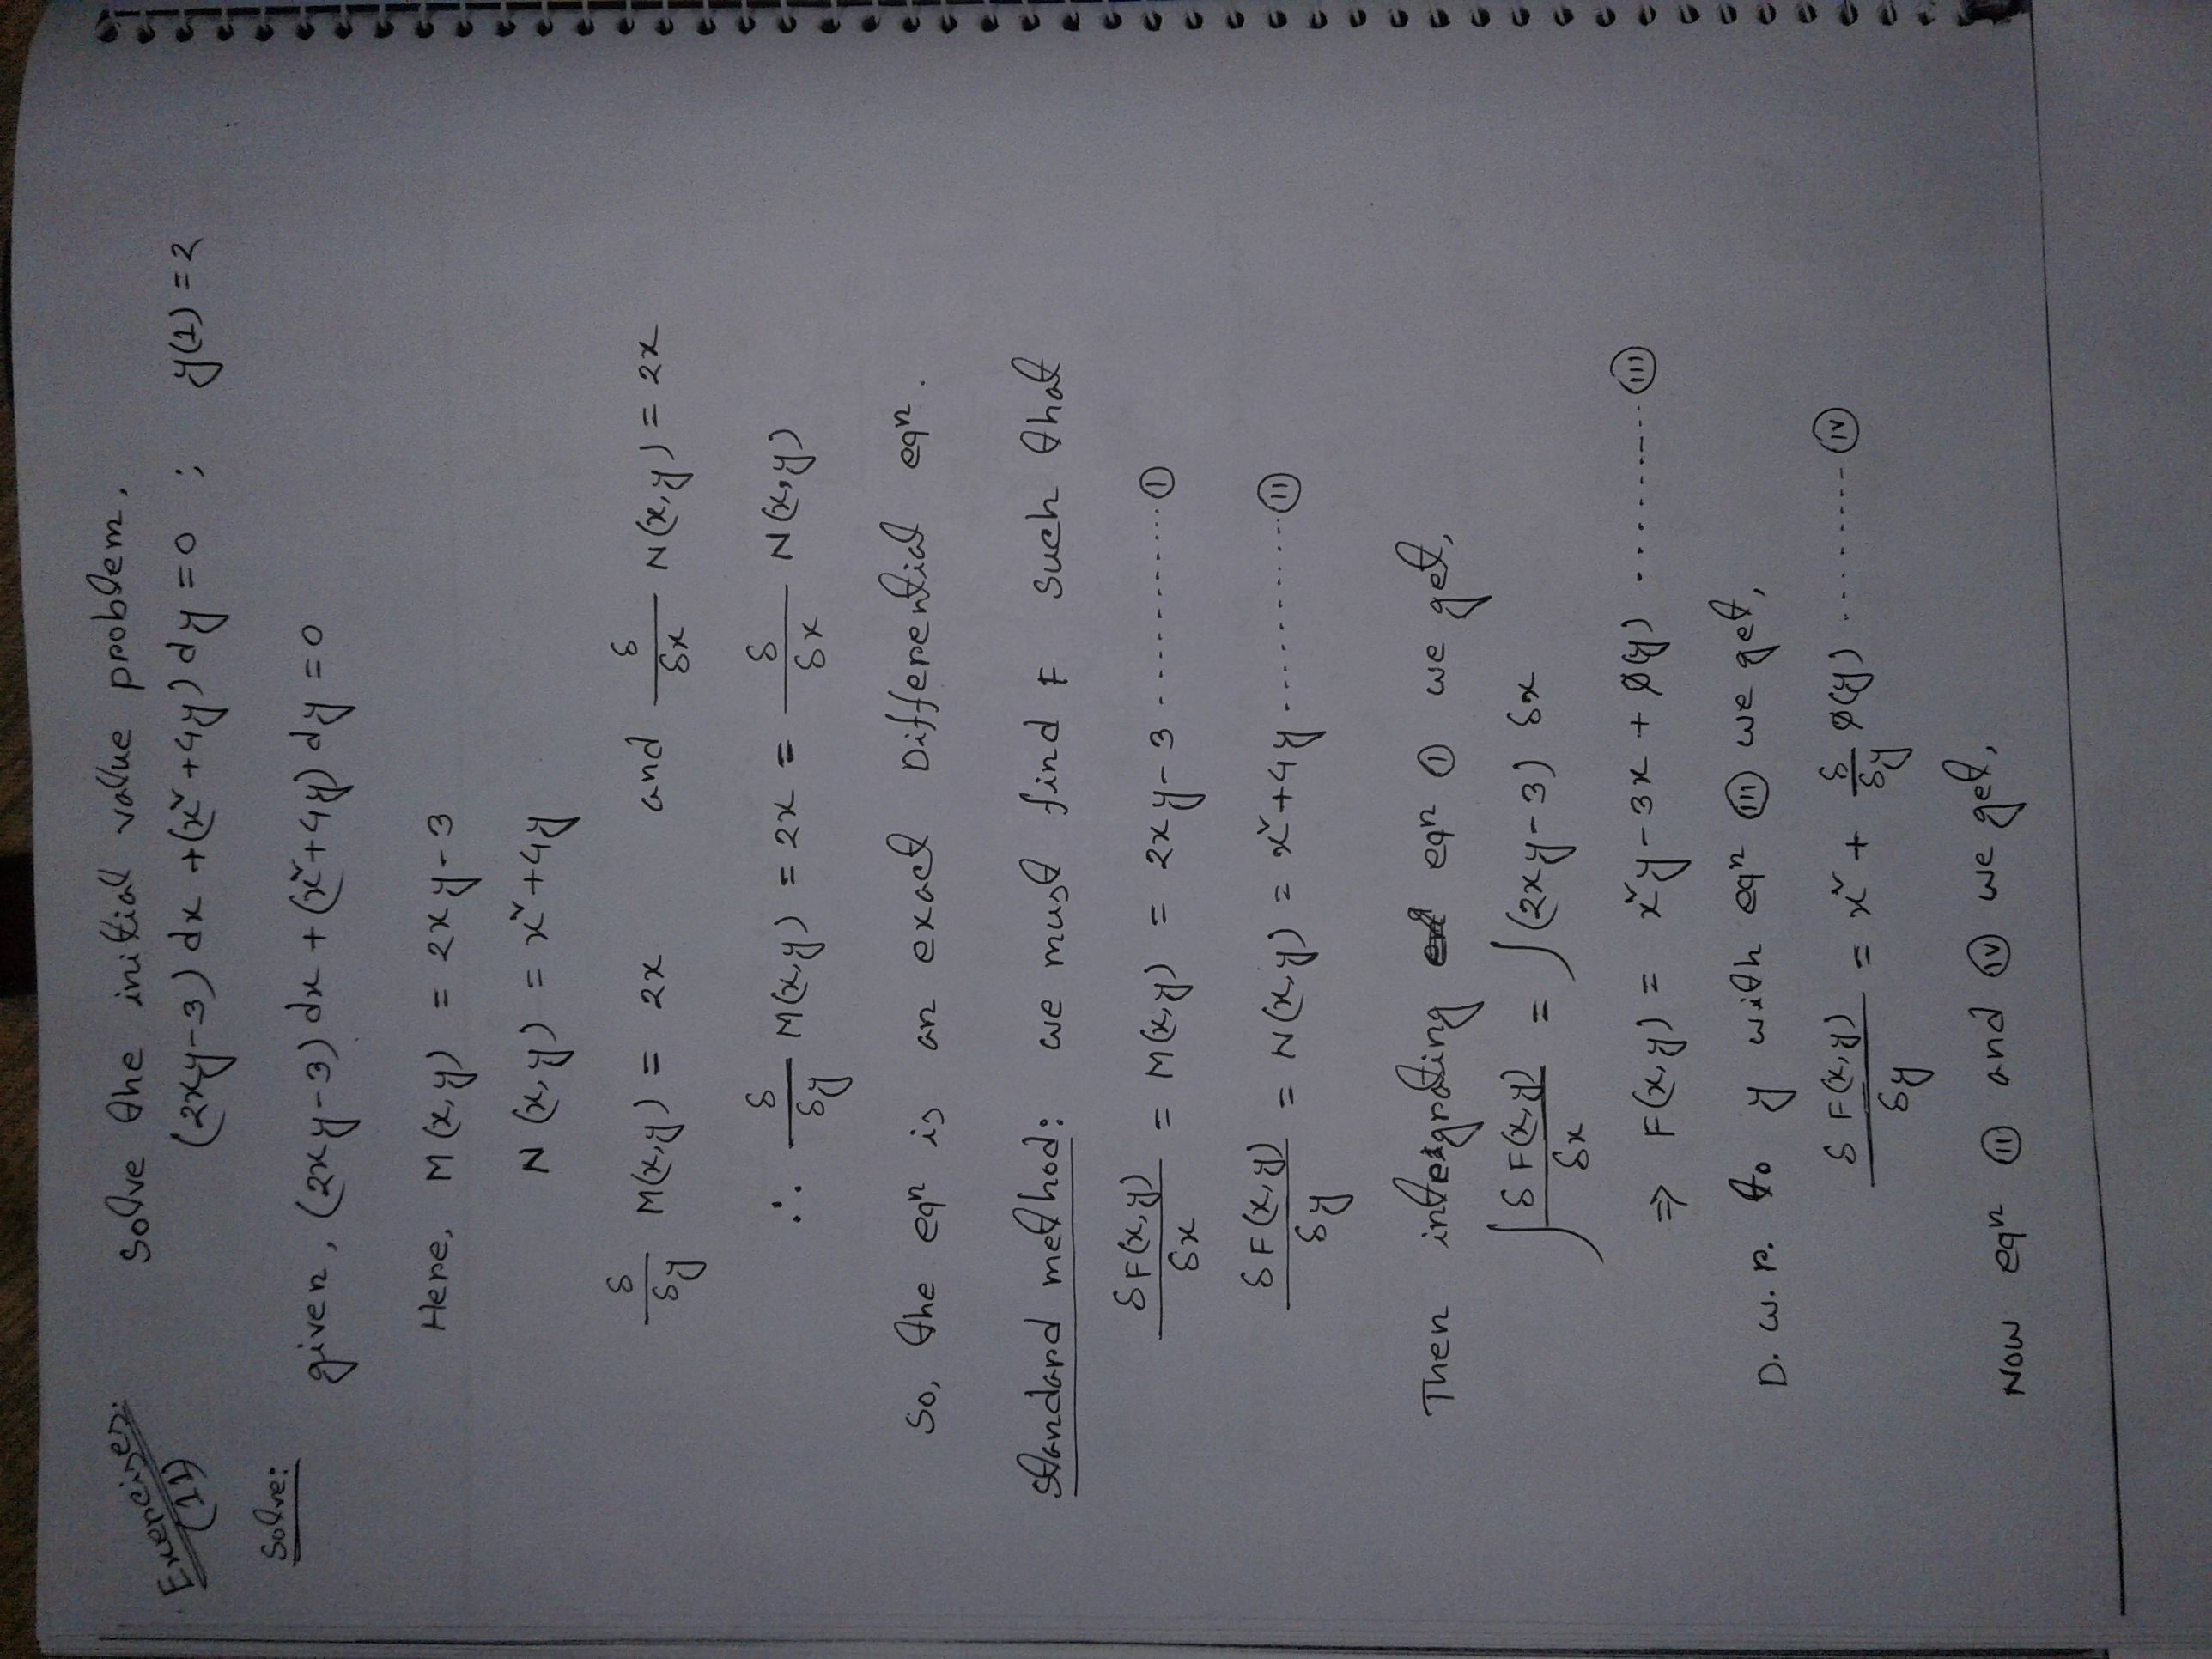 Exercises.
(11)
Solve the initial value problem.
(2xy-3) dx + (x² + 4y) dy = 0 ; y(1) = 2
Solve:
given, (2xy-3) dx + (x²+4y) dy = 0
Here, M(x,y) = 2xy-3
N(x,y) = x²+4y
δ/δy M(x,y) = 2x and δ/δx N(x,y) = 2x
∴ δ/δy M(x,y) = 2x = δ/δx N(x,y)
So, the eqⁿ is an exact Differential eqⁿ.
Standard method: we must find F such that
δF(x,y)/δx = M(x,y) = 2xy-3 ............ (I)
δF(x,y)/δy = N(x,y) = x²+4y ............ (II)
Then integrating eqⁿ (I) we get,
∫ δF(x,y)/δx = ∫(2xy-3) δx
⇒ F(x,y) = x²y-3x + ϕ(y) ............ (III)
D. w. r. to y with eqⁿ (III) we get,
δF(x,y)/δy = x² + δ/δy ϕ(y) ............ (IV)
Now eqⁿ (II) and (IV) we get,